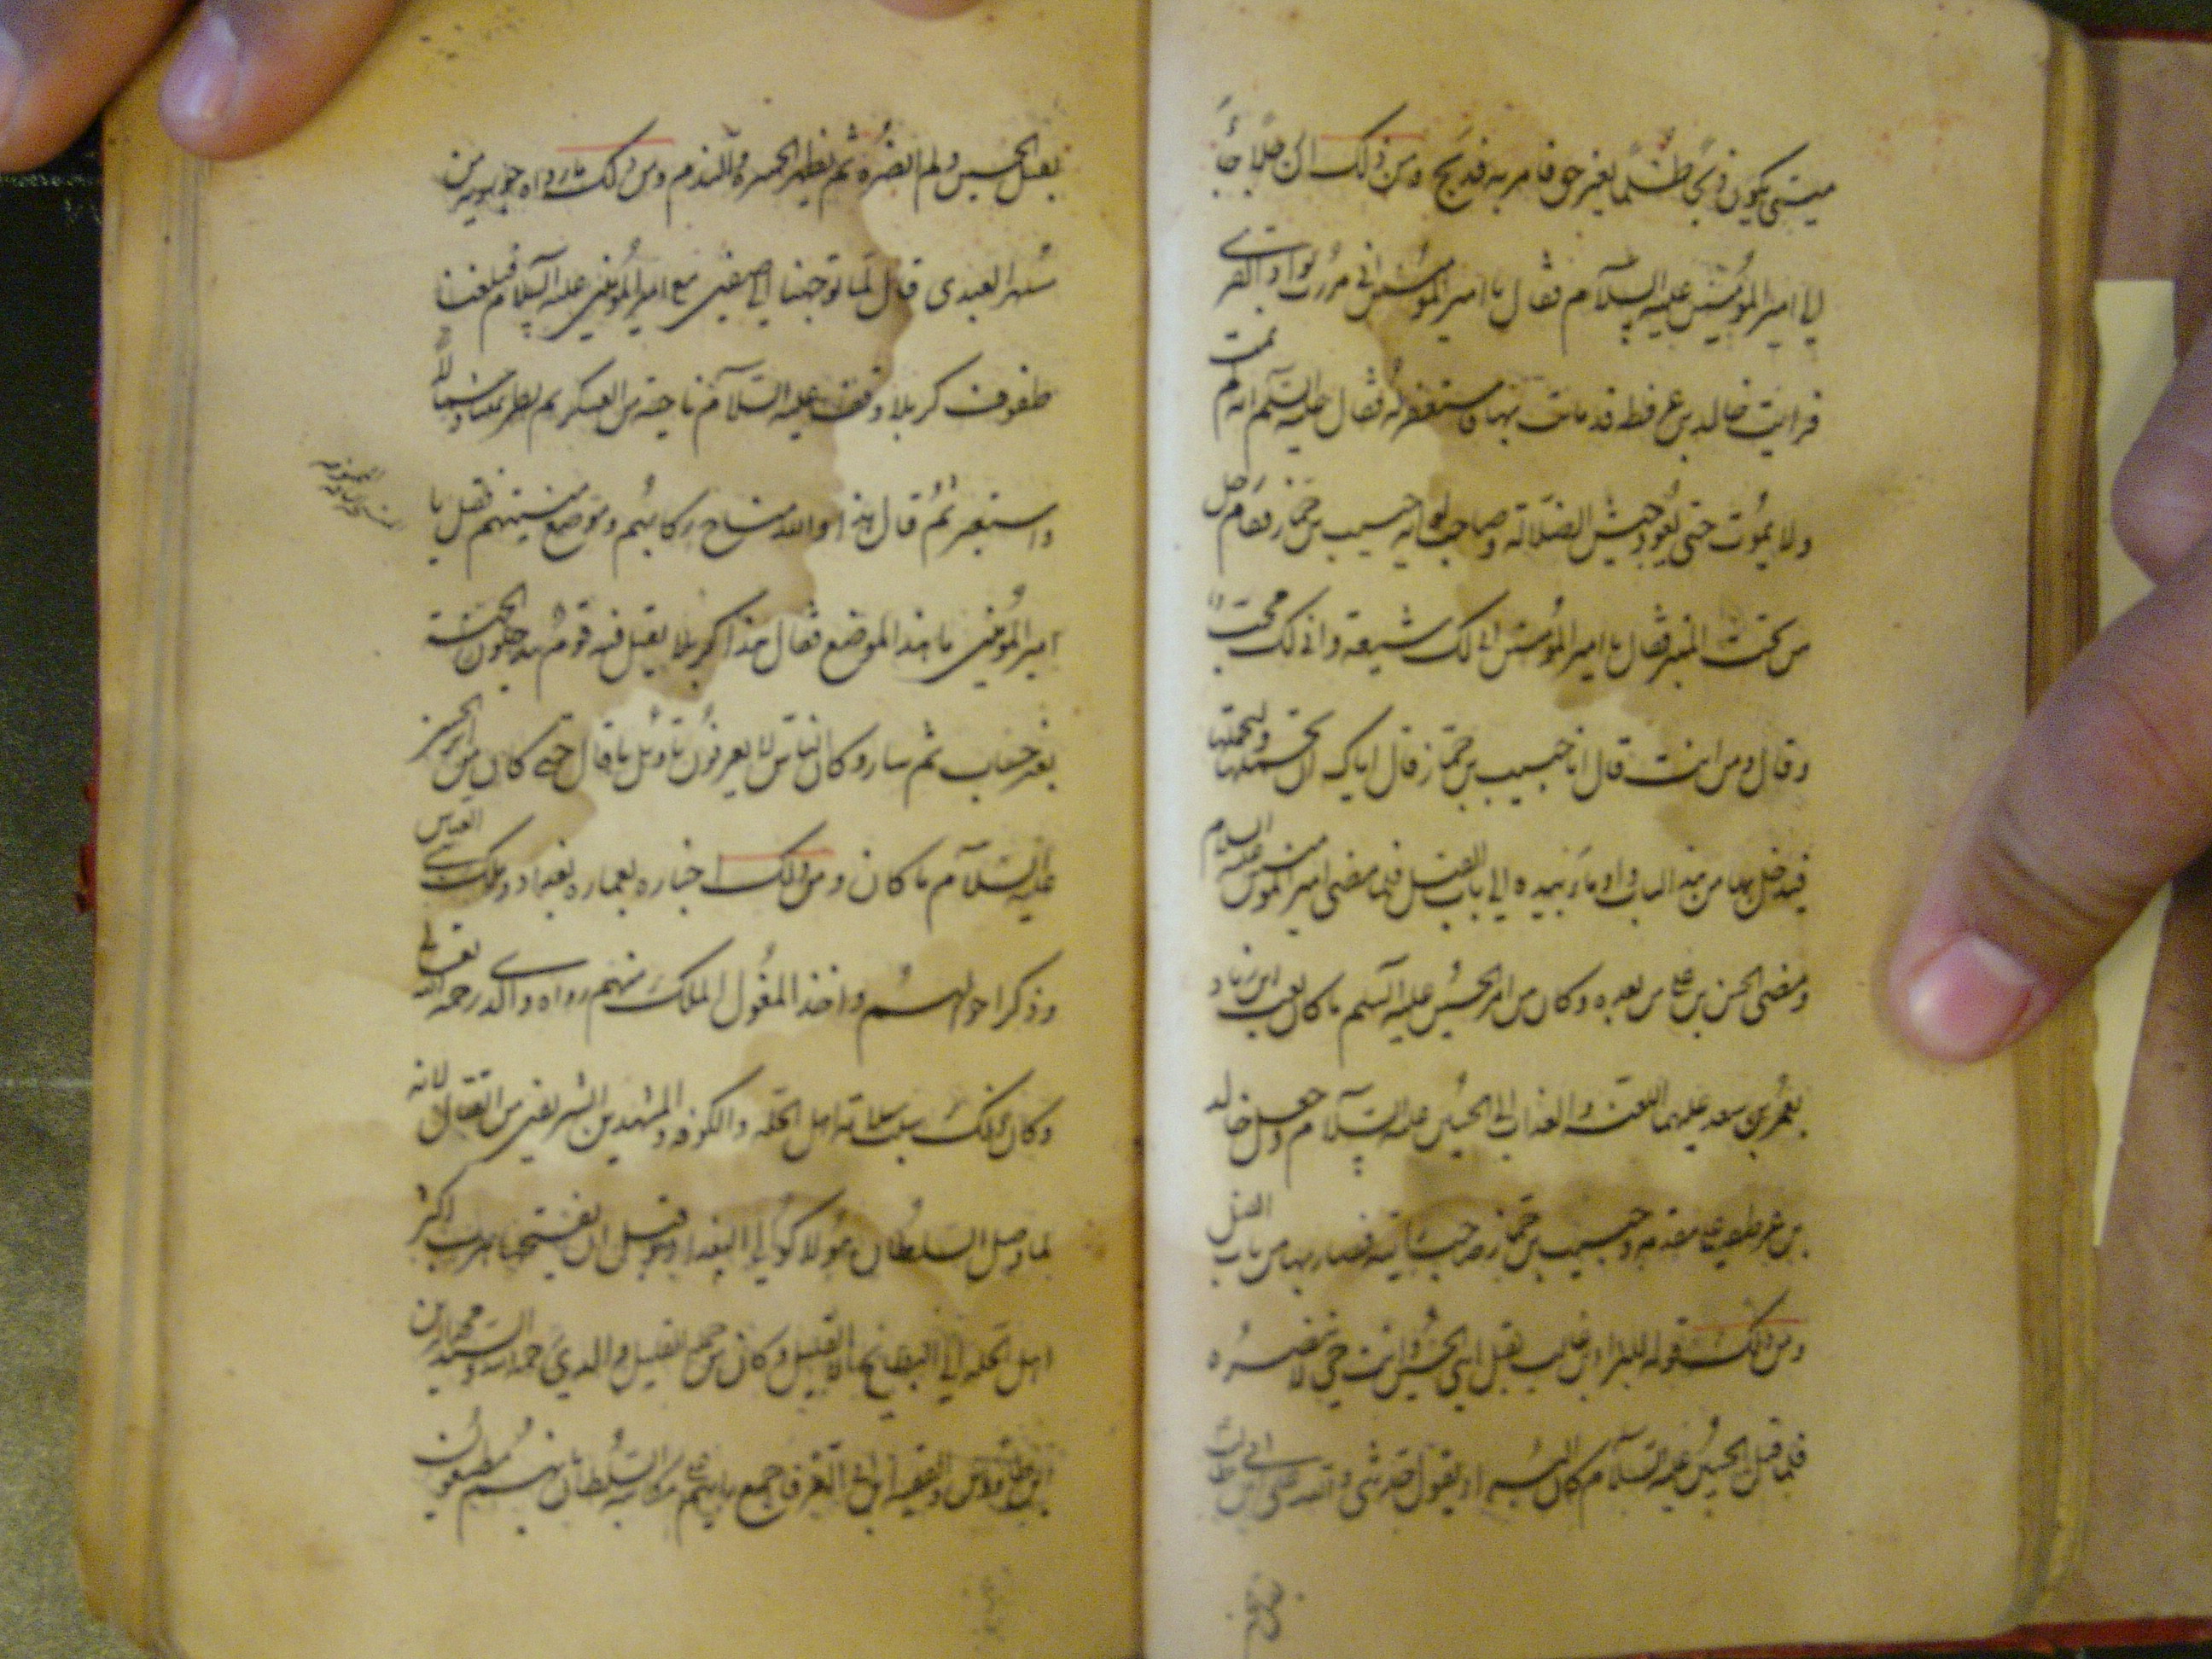 ميتتى يكون ذبحا ظلما بغير حق فامر به فذبح ومن ذلك ان رجلا جاء
الى امير المؤمنين عليه السلام فقال يا امير المؤمنين انى مررت بوادى القرى
فرايت خالد بن عرفطه قد مات بها فاستغفر له فقال عليه السلم انه لم يمت
ولا يموت حتى يقود جيش الضلالة وصاحب لوائه حبيب بن جماز فقام رجل
من تحت المنبر فقال يا امير المؤمنين انى لك شيعة وانى لك محب
وقال ومن انت قال انا حبيب بن جماز قال اياك ان تحملها ولتحملنها
فيدخل بها من هذا الباب واومأ بيده الى باب الفيل فلما مضى امير المؤمنين عليه السلام
ومضى الحسن بن على من بعده وكان من امر الحسين عليه السلم ما كان بعث ابن زياد
بعمر بن سعد عليهما اللعنة والعذاب الى الحسين عليه السلام وجعل خالد
بن عرطفه على مقدمته وحبيب بن جماز صاحب رايته فصار بها من باب الفيل
ومن ذلك قوله للبراء بن عازب يقتل ابنى الحسين وانت حى لا تنصره
فلما قتل الحسين عليه السلام كان البراء يقول صدق على بن ابى طالب
يقتل الحسين ولم انصره ثم يظهر الحسرة والندم ومن ذلك ما رواه جويرية بن
مسهر العبدى قال لما توجهنا الى صفين مع امير المؤمنين عليه السلام فبلغنا
طفوف كربلا وقف عليه السلام ناحية من العسكر ثم نظر يمينا وشمالا
واستعبر ثم قال هذا والله مناخ ركابهم وموضع منيتهم فقيل يا
امير المؤمنين ما هذا الموضع فقال هذا كربلا يقتل فيه قوم يدخلون الجنة
بغير حساب ثم سار وكان الناس لا يعرفون تاويل ما قال حتى كان من الحسين
عليه السلام ما كان ومن ذلك اخباره بعمارة بغداد وملك بنى العباس
وذكر احوالهم واخذ المغول الملك منهم رواه والدى رحمه الله تعالى
وكان ذلك سبب سلامة اهل الحله والكوفه والمشهدين الشريفين من القتال لانه
لما وصل السلطان هولاكو الى البغداد وقبل ان يفتحها هرب اكثر
اهل الحله الى البطايح الا القليل وكان من جملة القليل والدى رحمه الله والسيد مجد الدين
ابن طاوس والفقيه ابن ابى العز فاجمع رايهم على مكاتبة السلطان بانهم مطيعون